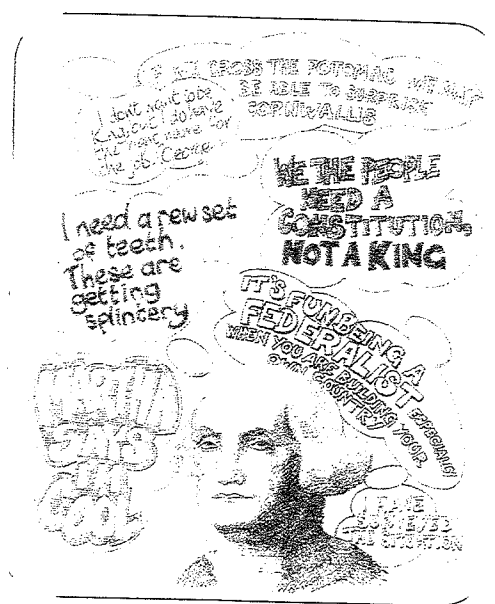 IF WE CROSS THE POTOMAC WE MAY
BE ABLE TO SURPRISE
CORNWALLIS
I dont want to be
King, but I do have
the right name for
the job. George
WE THE PEOPLE
NEED A
CONSTITUTION,
NOT A KING
I need a new set
of teeth.
These are
getting
splintery
IT'S FUN BEING A
FEDERALIST ESPECIALLY
WHEN YOU ARE BUILDING YOUR
OWN COUNTRY
MARTHA
SAYS
I'M
COOL
I HAVE
SURVEYED
THE SITUATION